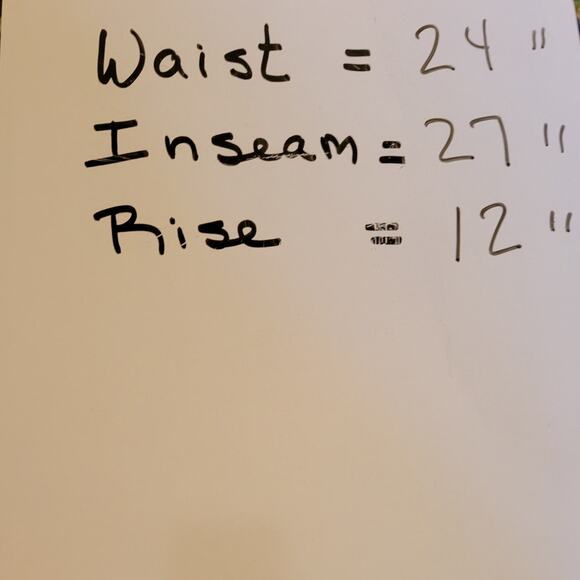 Waist = 24 "
Inseam = 27 "
Rise = 12 "